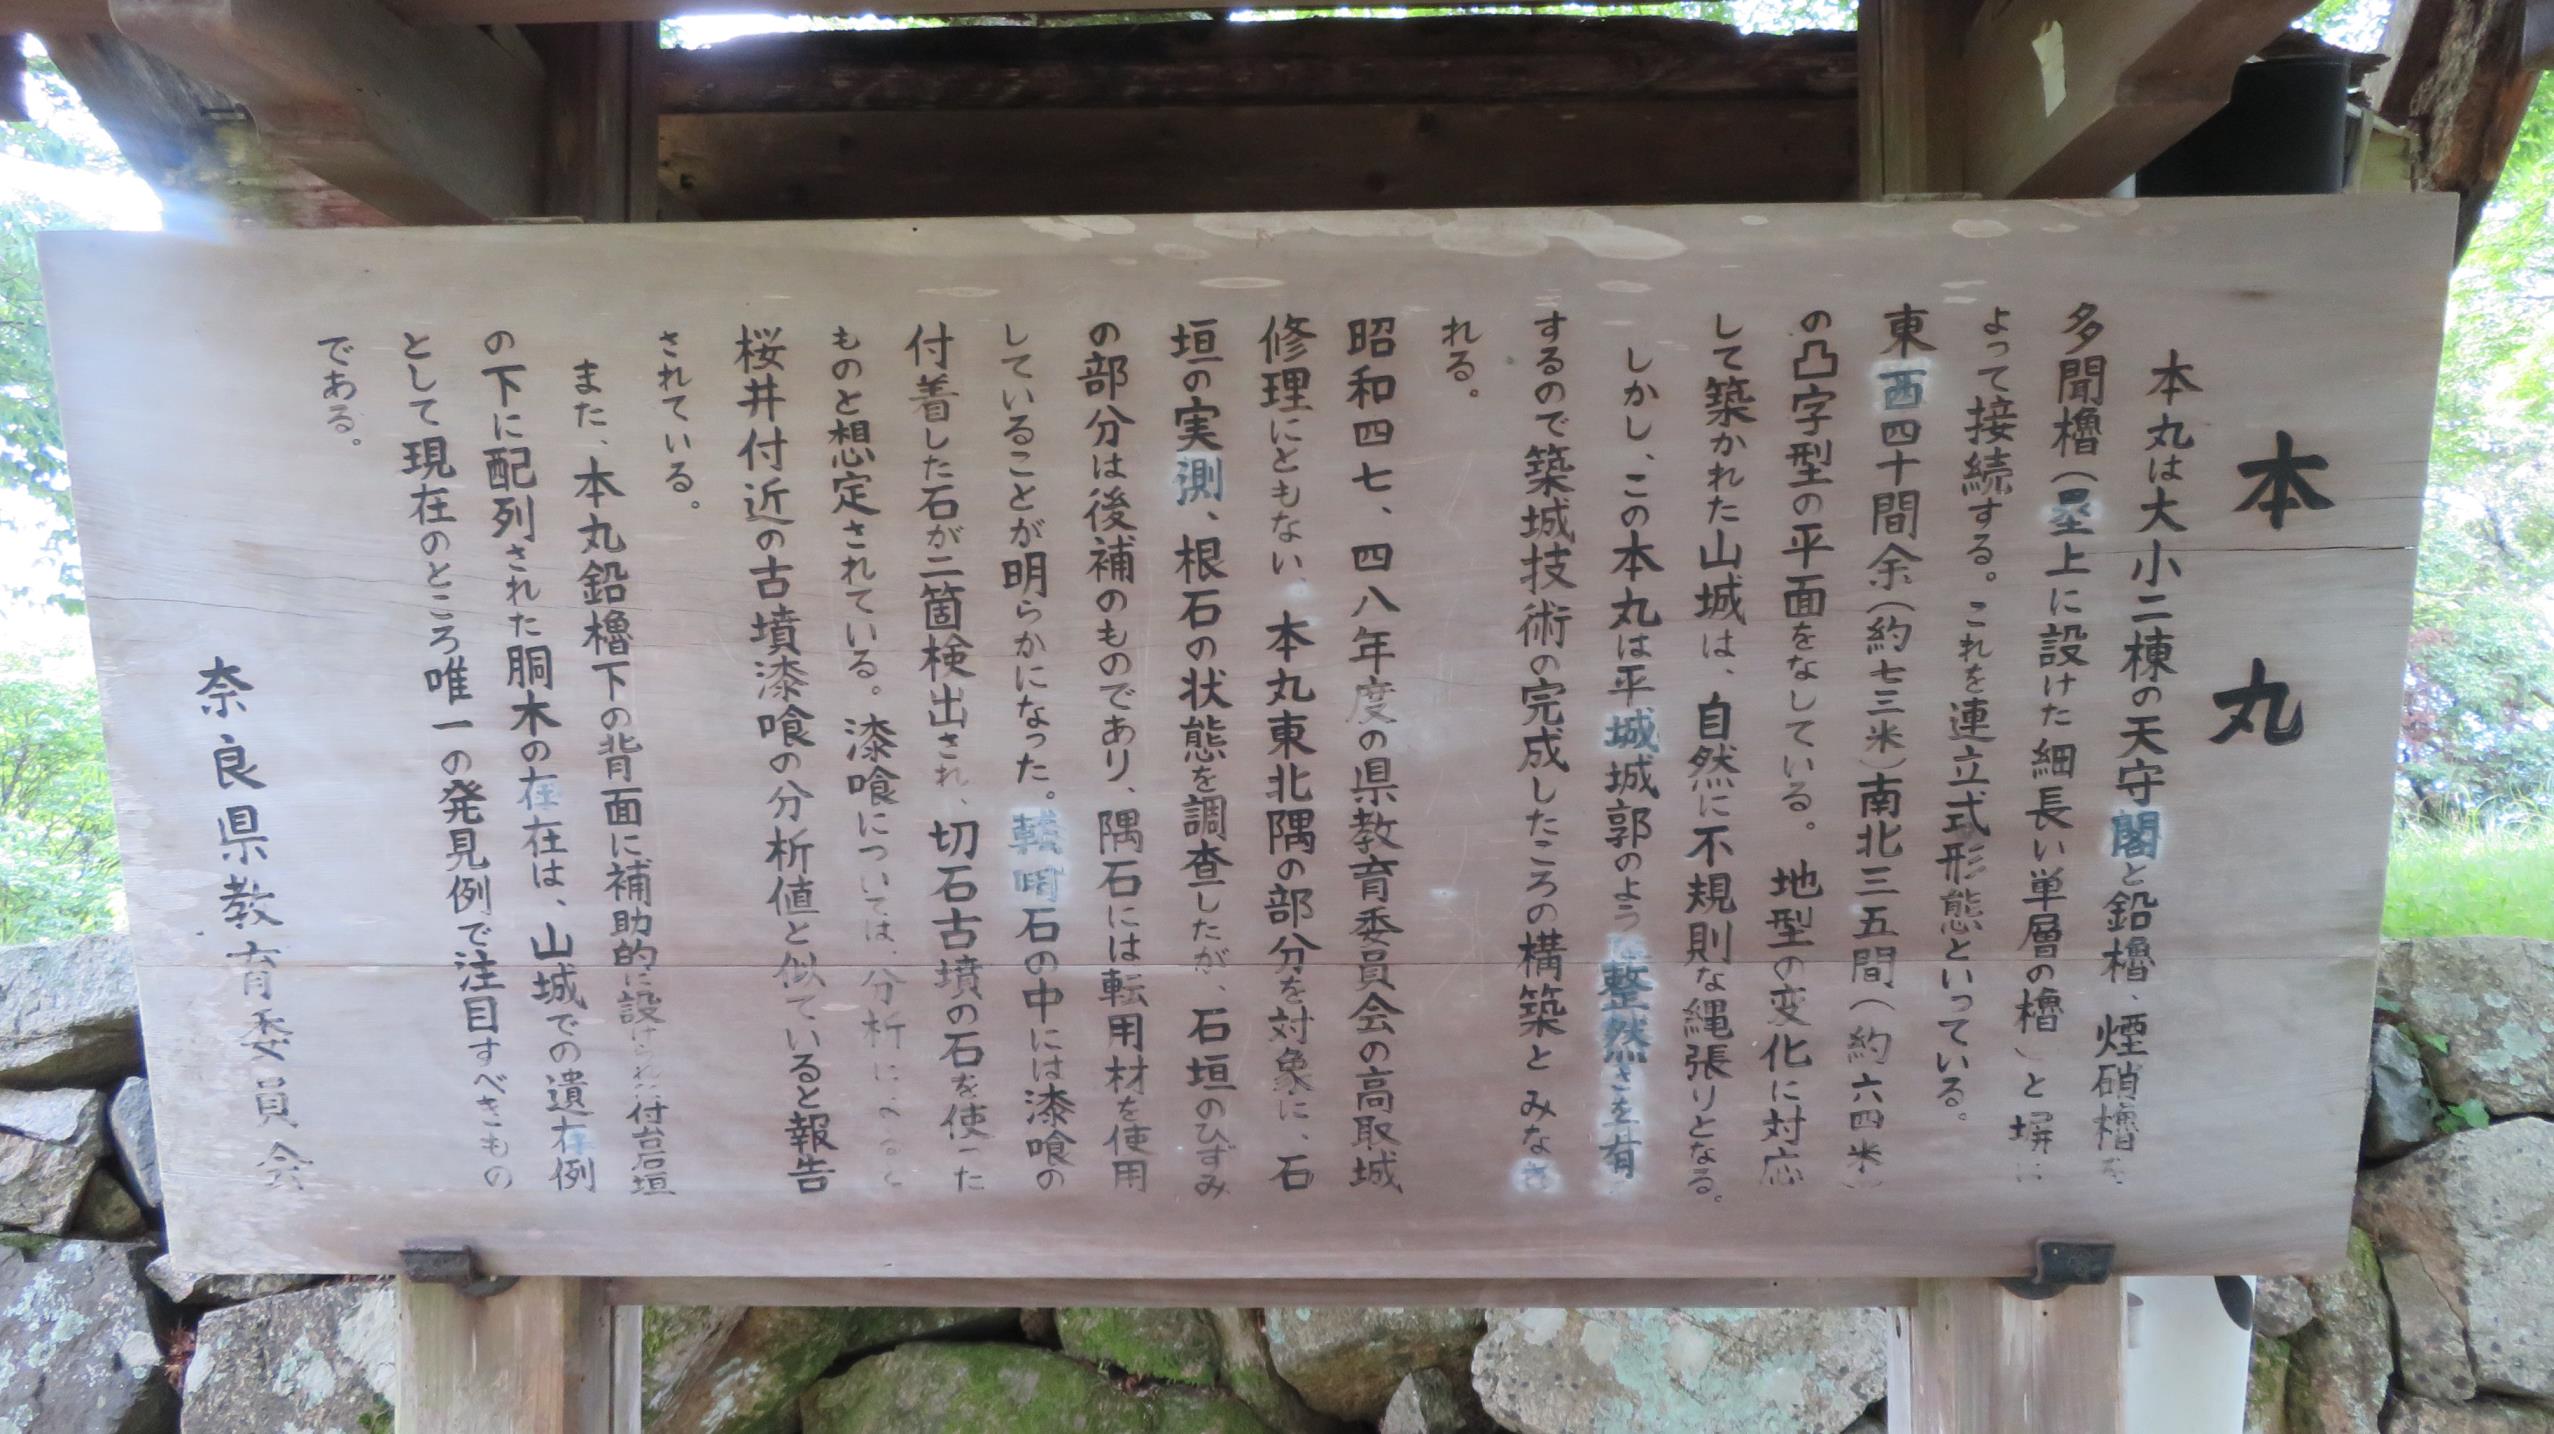 本丸
本丸は大小二棟の天守閣と鉛櫓、煙硝櫓を
多聞櫓(塁上に設けた細長い単層の櫓)と塀に
よって接続する。これを連立式形態といっている。
東西四十間余(約七三米)南北三五間(約六四米)
の凸字型の平面をなしている。地型の変化に対応
して築かれた山城は、自然に不規則な縄張りとなる。
しかし、この本丸は平城城郭のような整然さを有
するので築城技術の完成したころの構築とみなさ
れる。
昭和四七、四八年度の県教育委員会の高取城
修理にともない、本丸東北隅の部分を対象に、石
垣の実測、根石の状態を調査したが、石垣のひずみ
の部分は後補のものであり、隅石には転用材を使用
していることが明らかになった。転用石の中には漆喰の
付着した石が二箇検出され、切石古墳の石を使った
ものと想定されている。漆喰については、分析によると
桜井付近の古墳漆喰の分析値と似ていると報告
されている。
また、本丸鉛櫓下の背面に補助的に設けられた付台石垣
の下に配列された胴木の存在は、山城での遺存例
として現在のところ唯一の発見例で注目すべきもの
である。
奈良県教育委員会